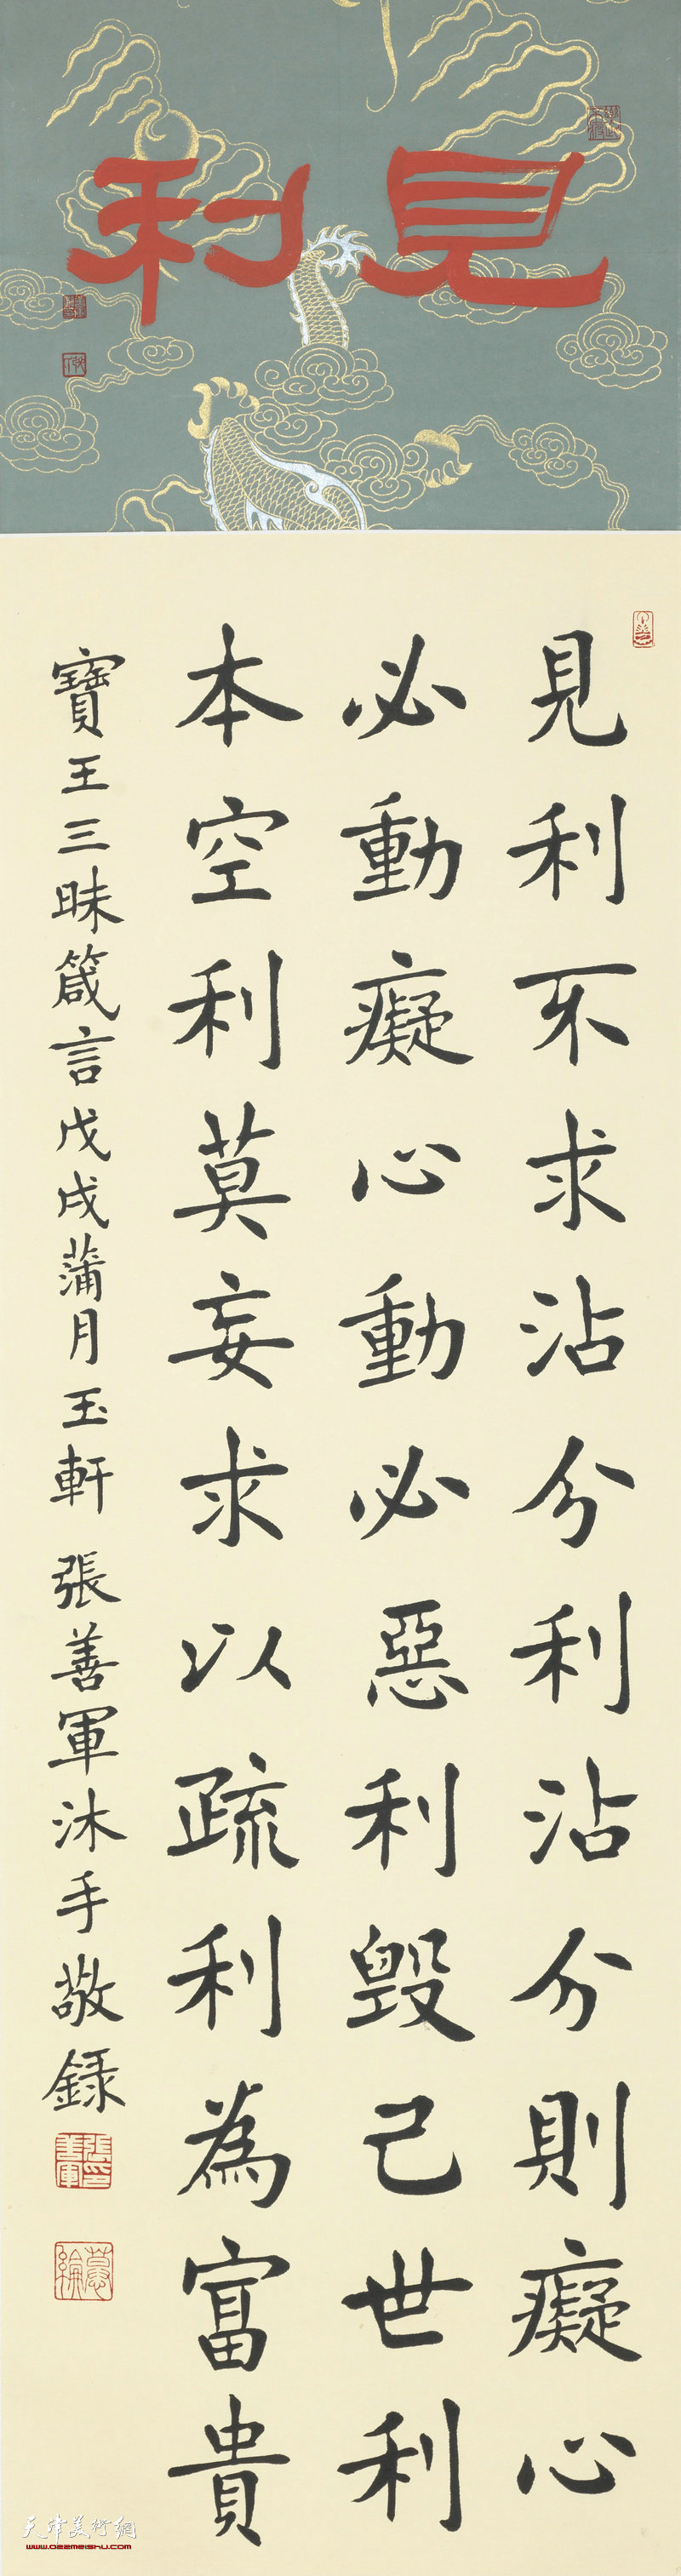 見利
見利不求沾分利沾分則癡心
必動癡心動必惡利毀己世利
本空利莫妄求以疏利為富貴
寶王三昧箴言戊戌蒲月玉軒 張善軍沐手敬錄
張善軍印
天津美術網